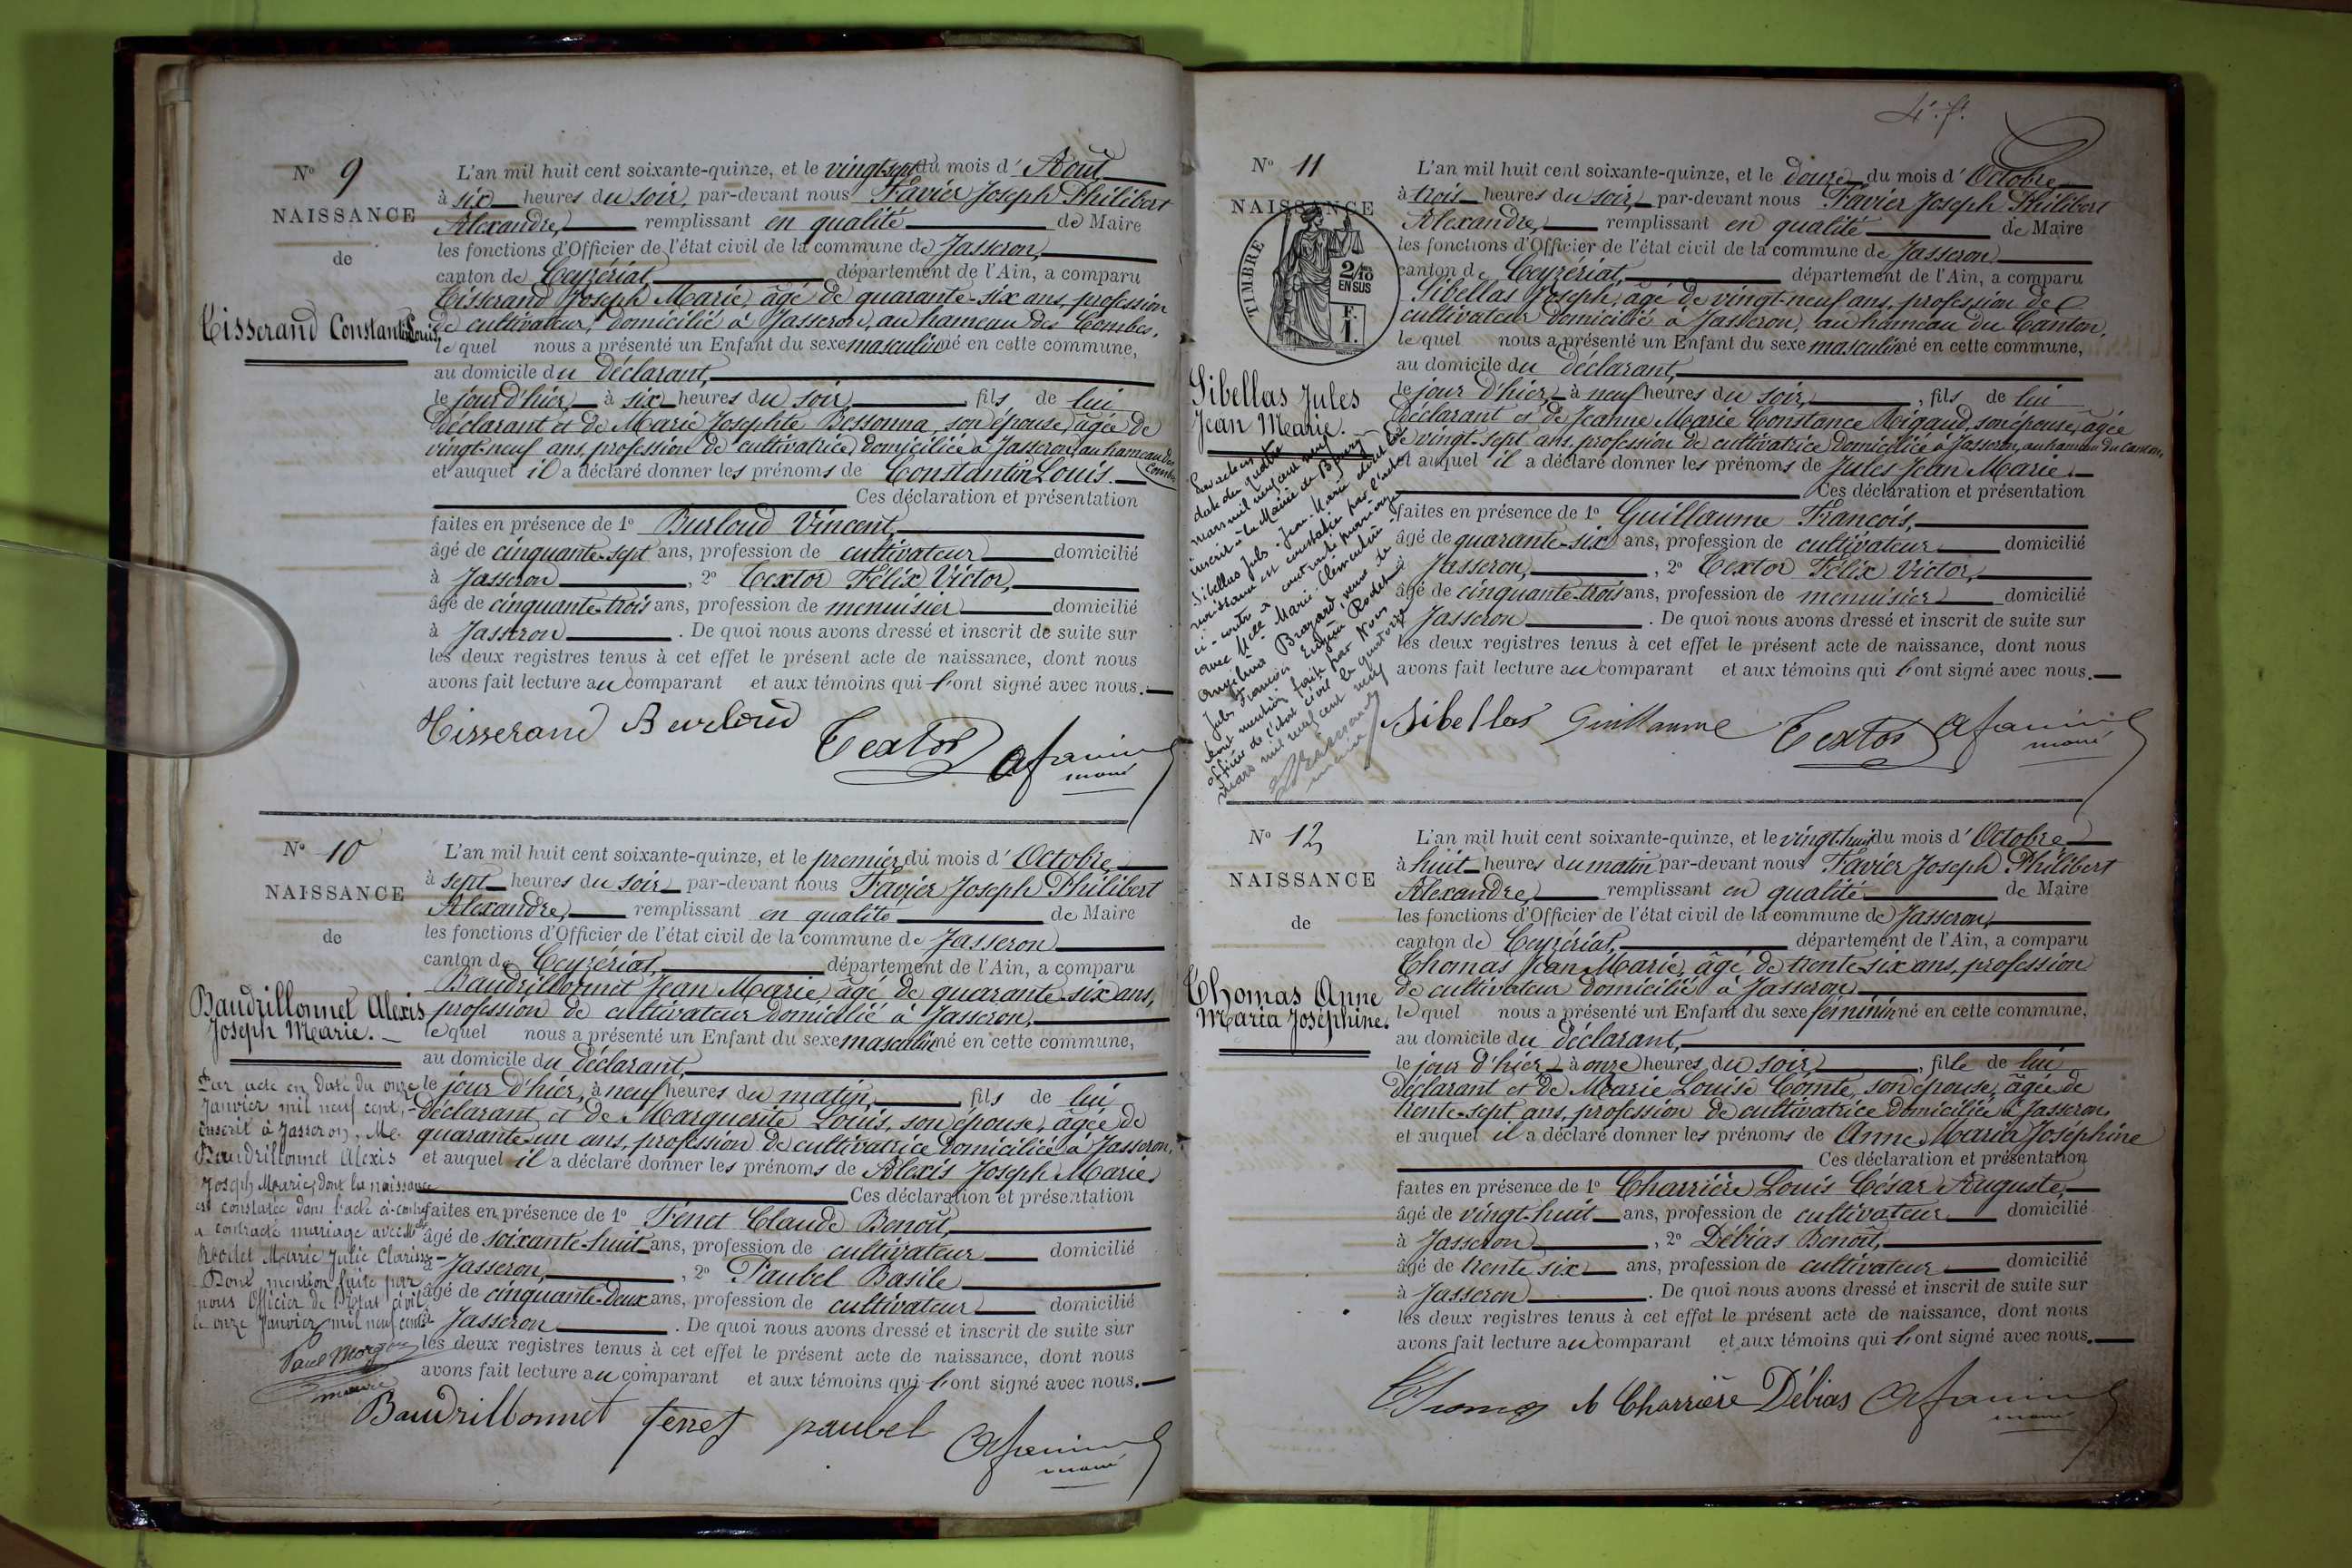 N° 9
NAISSANCE
de
Tisserand Constantin Louis.
L'an mil huit cent soixante-quinze, et le vingt-sept du mois d' Août
à six heures du soir, par-devant nous Favier Joseph Philibert
Alexandre, remplissant en qualité de Maire
les fonctions d'Officier de l'état civil de la commune de Jasseron,
canton de Ceyzériat, département de l'Ain, a comparu
Tisserand Joseph Marie, âgé de quarante-six ans, profession
de cultivateur, domicilié à Jasseron, au hameau des Combes,
lequel nous a présenté un Enfant du sexe masculin né en cette commune,
au domicile du déclarant,
le jour d'hier, à six heures du soir, fils de lui
déclarant et de Marie Josephte Bessonna, son épouse, âgée de
vingt-neuf ans, profession de cultivatrice, domiciliée à Jasseron, au hameau des Combes
et auquel il a déclaré donner les prénoms de Constantin Louis.
Ces déclaration et présentation
faites en présence de 1° Burloud Vincent,
âgé de cinquante-sept ans, profession de cultivateur domicilié
à Jasseron, 2° Textor Félix Victor,
âgé de cinquante-trois ans, profession de menuisier domicilié
à Jasseron. De quoi nous avons dressé et inscrit de suite sur
les deux registres tenus à cet effet le présent acte de naissance, dont nous
avons fait lecture au comparant et aux témoins qui l'ont signé avec nous.
Tisserand Burloud Textor Afavier
maire
N° 10
NAISSANCE
de
Baudrillonnet Alexis
Joseph Marie.
Par acte en date du onze
Janvier mil neuf cent,
inscrit à Jasseron, Mr.
Baudrillonnet Alexis
Joseph Marie, dont la naissance
est constatée dans l'acte ci-contre
a contracté mariage avec Melle
Rodet Marie Julie Clarisse
Dont mention faite par
nous Officier de l'Etat civil
le onze Janvier mil neuf cent
Paul Morgon
maire
L'an mil huit cent soixante-quinze, et le premier du mois d' Octobre
à sept heures du soir, par-devant nous Favier Joseph Philibert
Alexandre, remplissant en qualité de Maire
les fonctions d'Officier de l'état civil de la commune de Jasseron
canton de Ceyzériat, département de l'Ain, a comparu
Baudrillonnet Jean Marie, âgé de quarante-six ans,
profession de cultivateur domicilié à Jasseron,
lequel nous a présenté un Enfant du sexe masculin né en cette commune,
au domicile du déclarant,
le jour d'hier, à neuf heures du matin, fils de lui
déclarant et de Marguerite Louis, son épouse, âgée de
quarante-un ans, profession de cultivatrice domiciliée à Jasseron,
et auquel il a déclaré donner les prénoms de Alexis Joseph Marie
Ces déclaration et présentation
faites en présence de 1° Fenet Claude Benoît,
âgé de soixante-huit ans, profession de cultivateur domicilié
à Jasseron, 2° Paubel Basile
âgé de cinquante-deux ans, profession de cultivateur domicilié
à Jasseron. De quoi nous avons dressé et inscrit de suite sur
les deux registres tenus à cet effet le présent acte de naissance, dont nous
avons fait lecture au comparant et aux témoins qui l'ont signé avec nous.
Baudrillonnet fenet paubel Afavier
maire
4e. f.
N° 11
NAISSANCE
TIMBRE
2/10 EN SUS
F. 1.
Sibellas Jules
Jean Marie.
Par acte en
date du quatre
mars mil neuf cent neuf
inscrit à la Mairie de Bourg
Sibellas Jules Jean-Marie dont la
naissance est constatée par l'acte
ci-contre a contracté mariage
avec Melle Marie Clémentine
Angelina Brazard, veuve de
Jules François Eugène Rodet
Dont mention faite par Nous
officier de l'état civil le quatorze
mars mil neuf cent neuf
maire
L'an mil huit cent soixante-quinze, et le douze du mois d' Octobre
à trois heures du soir, par-devant nous Favier Joseph Philibert
Alexandre, remplissant en qualité de Maire
les fonctions d'Officier de l'état civil de la commune de Jasseron
canton de Ceyzériat, département de l'Ain, a comparu
Sibellas Joseph, âgé de vingt-neuf ans, profession de
cultivateur domicilié à Jasseron, au hameau du Canton,
lequel nous a présenté un Enfant du sexe masculin né en cette commune,
au domicile du déclarant,
le jour d'hier, à neuf heures du soir, fils de lui
déclarant et de Jeanne Marie Constance Rigaud, son épouse, âgée
de vingt-sept ans, profession de cultivatrice domiciliée à Jasseron, au hameau du Canton,
et auquel il a déclaré donner les prénoms de Jules Jean Marie.
Ces déclaration et présentation
faites en présence de 1° Guillaume François,
âgé de quarante-six ans, profession de cultivateur domicilié
à Jasseron, 2° Textor Félix Victor,
âgé de cinquante-trois ans, profession de menuisier domicilié
à Jasseron. De quoi nous avons dressé et inscrit de suite sur
les deux registres tenus à cet effet le présent acte de naissance, dont nous
avons fait lecture au comparant et aux témoins qui l'ont signé avec nous.
Sibellas Guillaume Textor Afavier
maire
N° 12
NAISSANCE
de
Thomas Anne
Maria Joséphine.
L'an mil huit cent soixante-quinze, et le vingt-huit du mois d' Octobre
à huit heures du matin par-devant nous Favier Joseph Philibert
Alexandre, remplissant en qualité de Maire
les fonctions d'Officier de l'état civil de la commune de Jasseron,
canton de Ceyzériat, département de l'Ain, a comparu
Thomas Jean Marie, âgé de trente-six ans, profession
de cultivateur domicilié à Jasseron
lequel nous a présenté un Enfant du sexe féminin né en cette commune,
au domicile du déclarant,
le jour d'hier à onze heures du soir, fille de lui
déclarant et de Marie Louise Comte, son épouse, âgée de
trente-sept ans, profession de cultivatrice domiciliée à Jasseron,
et auquel il a déclaré donner les prénoms de Anne Maria Joséphine
Ces déclaration et présentation
faites en présence de 1° Charrière Louis César Auguste,
âgé de vingt-huit ans, profession de cultivateur domicilié
à Jasseron, 2° Débias Benoît,
âgé de trente six ans, profession de cultivateur domicilié
à Jasseron. De quoi nous avons dressé et inscrit de suite sur
les deux registres tenus à cet effet le présent acte de naissance, dont nous
avons fait lecture au comparant et aux témoins qui l'ont signé avec nous.
Thomas A Charrière Débias Afavier
maire